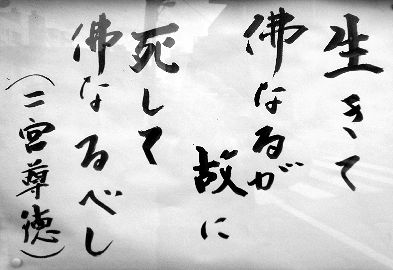 生きて
佛なるが
故に
死して
佛なるべし
(二宮尊徳)